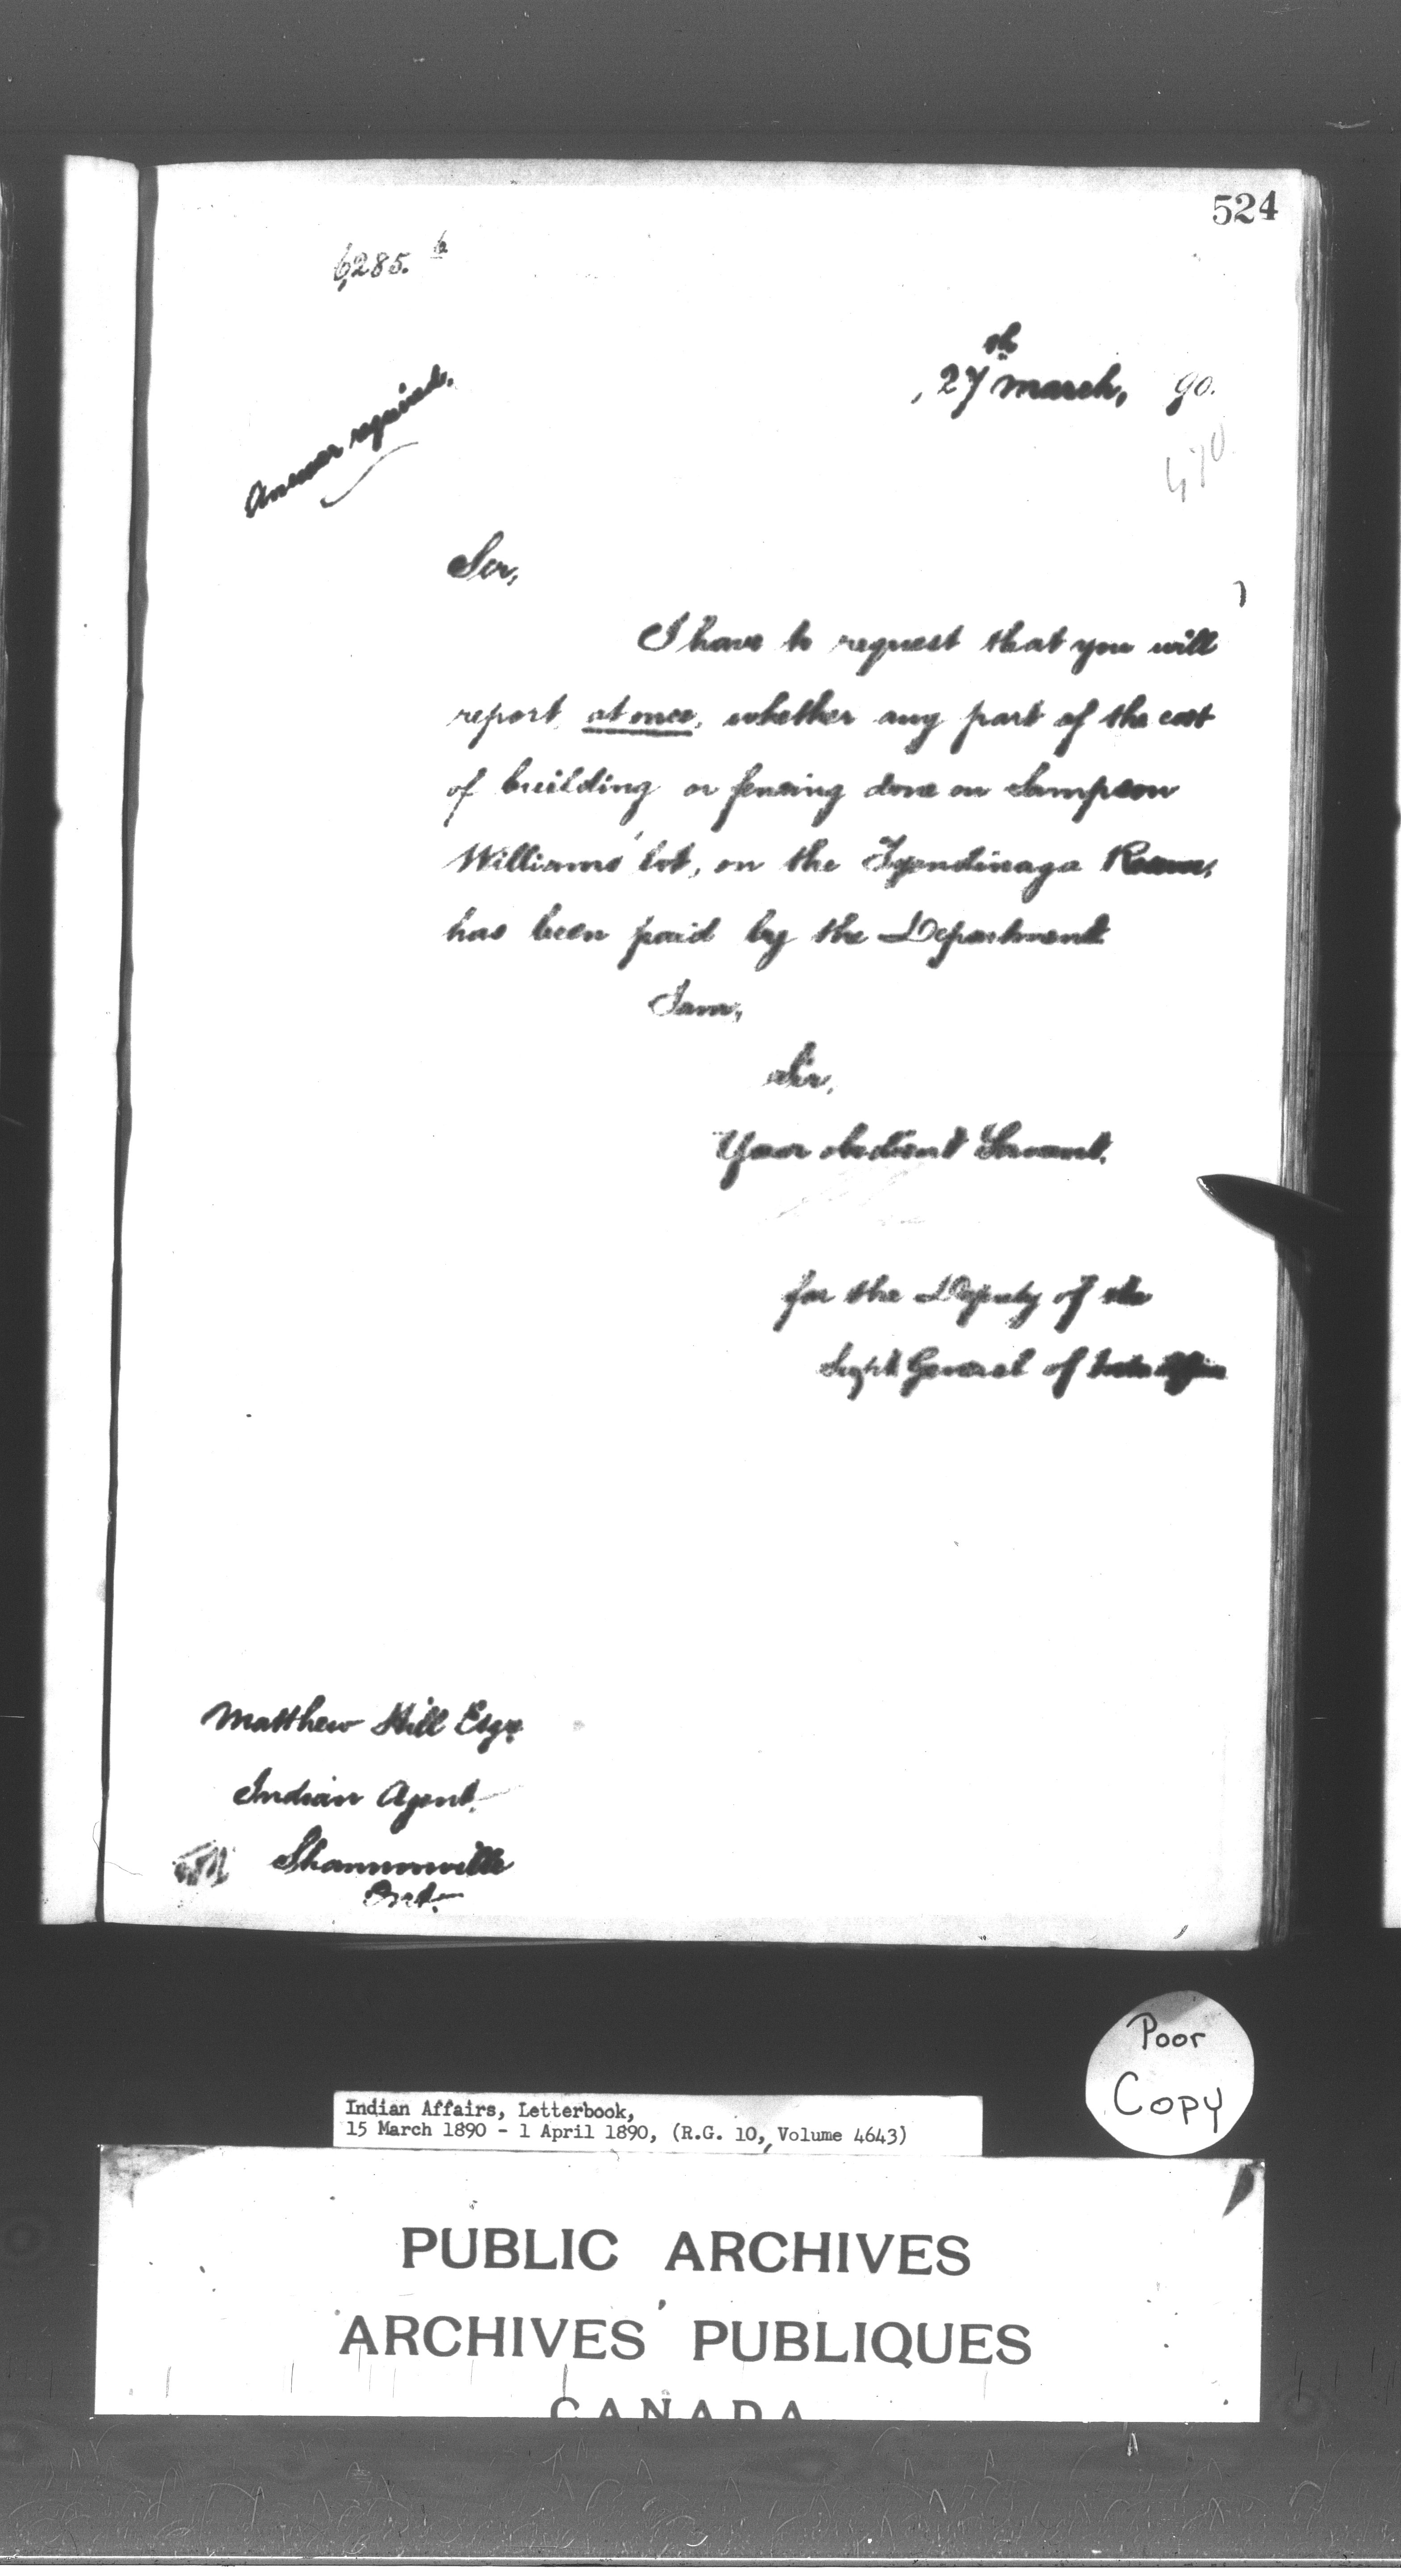 524
6285.
27th March, 90.
470
Answer required.
Sir,
I have to request that you will
report at once, whether any part of the cost
of building or fencing done on Sampson
Williams' lot, on the Tyendinaga
has been paid by the Department
I am,
Sir,
Your obedient Servant.
for the Deputy of the
Supt General of Indn Affairs
Matthew Hill Esqr.
Indian Agent.
Shannonville
Ont.
Poor
Copy
Indian Affairs, Letterbook,
15 March 1890 - 1 April 1890, (R.G. 10, Volume 4643)
PUBLIC ARCHIVES
ARCHIVES PUBLIQUES
CANADA